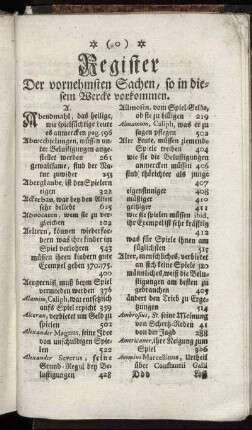 ✲ ( 0 ) ✲
Register
Der vornehmsten Sachen, so in die-
sem Wercke vorkommen.
A.
Abendmahl, das heilige,
wie spielsüchtige leute
es anmercken pag. 196
Abwechselungen, müssen un-
ter Belustigungen ange-
stellet worden 261
gewaltsame, sind der Na-
tur zuwider 251
Aberglaube, ist den Spielern
eigen 322
Ackerbau, war bey den Alten
sehr beliebt 615
Advocaten, wem sie zu ver-
gleichen 107
Aeltern, können wieder for-
dern was ihre kinder im
Spiel verlohren 547
müssen ihren kindern gute
Exempel geben 170. 175.
400
Aergerniß, muß beym Spiel
vermieden werden 376
Alamin, Caliph, war entsetzlich
aufs Spiel erpicht 354
Alcoran, verbietet um Geld zu
spielen 502
Alexander Magnus, seine Idee
von unschuldigen Spielen
502
Alexander Severus, seine
Grund-Regul bey Be-
lustigungen 428
Allmosen, vom Spiel-Gelde,
ob sie zu billigen 219
Almamum, Caliph, was er zu
sagen pflegen 502
Alte Leute, müssen ziemende
Spiele treiben 404
wie sie die Belustigungen
ansehen müssen 403
sind thörichter als junge
407
eigensinniger 408
müßiger 410
geitziger 411
wie sie spielen müssen ibid.
ihr Exempel ist sehr kräfftig
412
was für Spiele ihnen am
füglichsten 515
Alter, menschliches, verbindet
an sich keine Spiele 380
männliches, weiß die Belu-
stigungen am besten zu
brauchen 409
ändert den Trieb zu Ergetz-
ungen 514
Ambrosius, St. seine Meinung
von Schertz-Reden 41
von der Jagd 288
Americaner, ihre Neigung zum
Spiel 506
Ammius Marcellinus, Urtheil
über Constantii Galli
Ddd